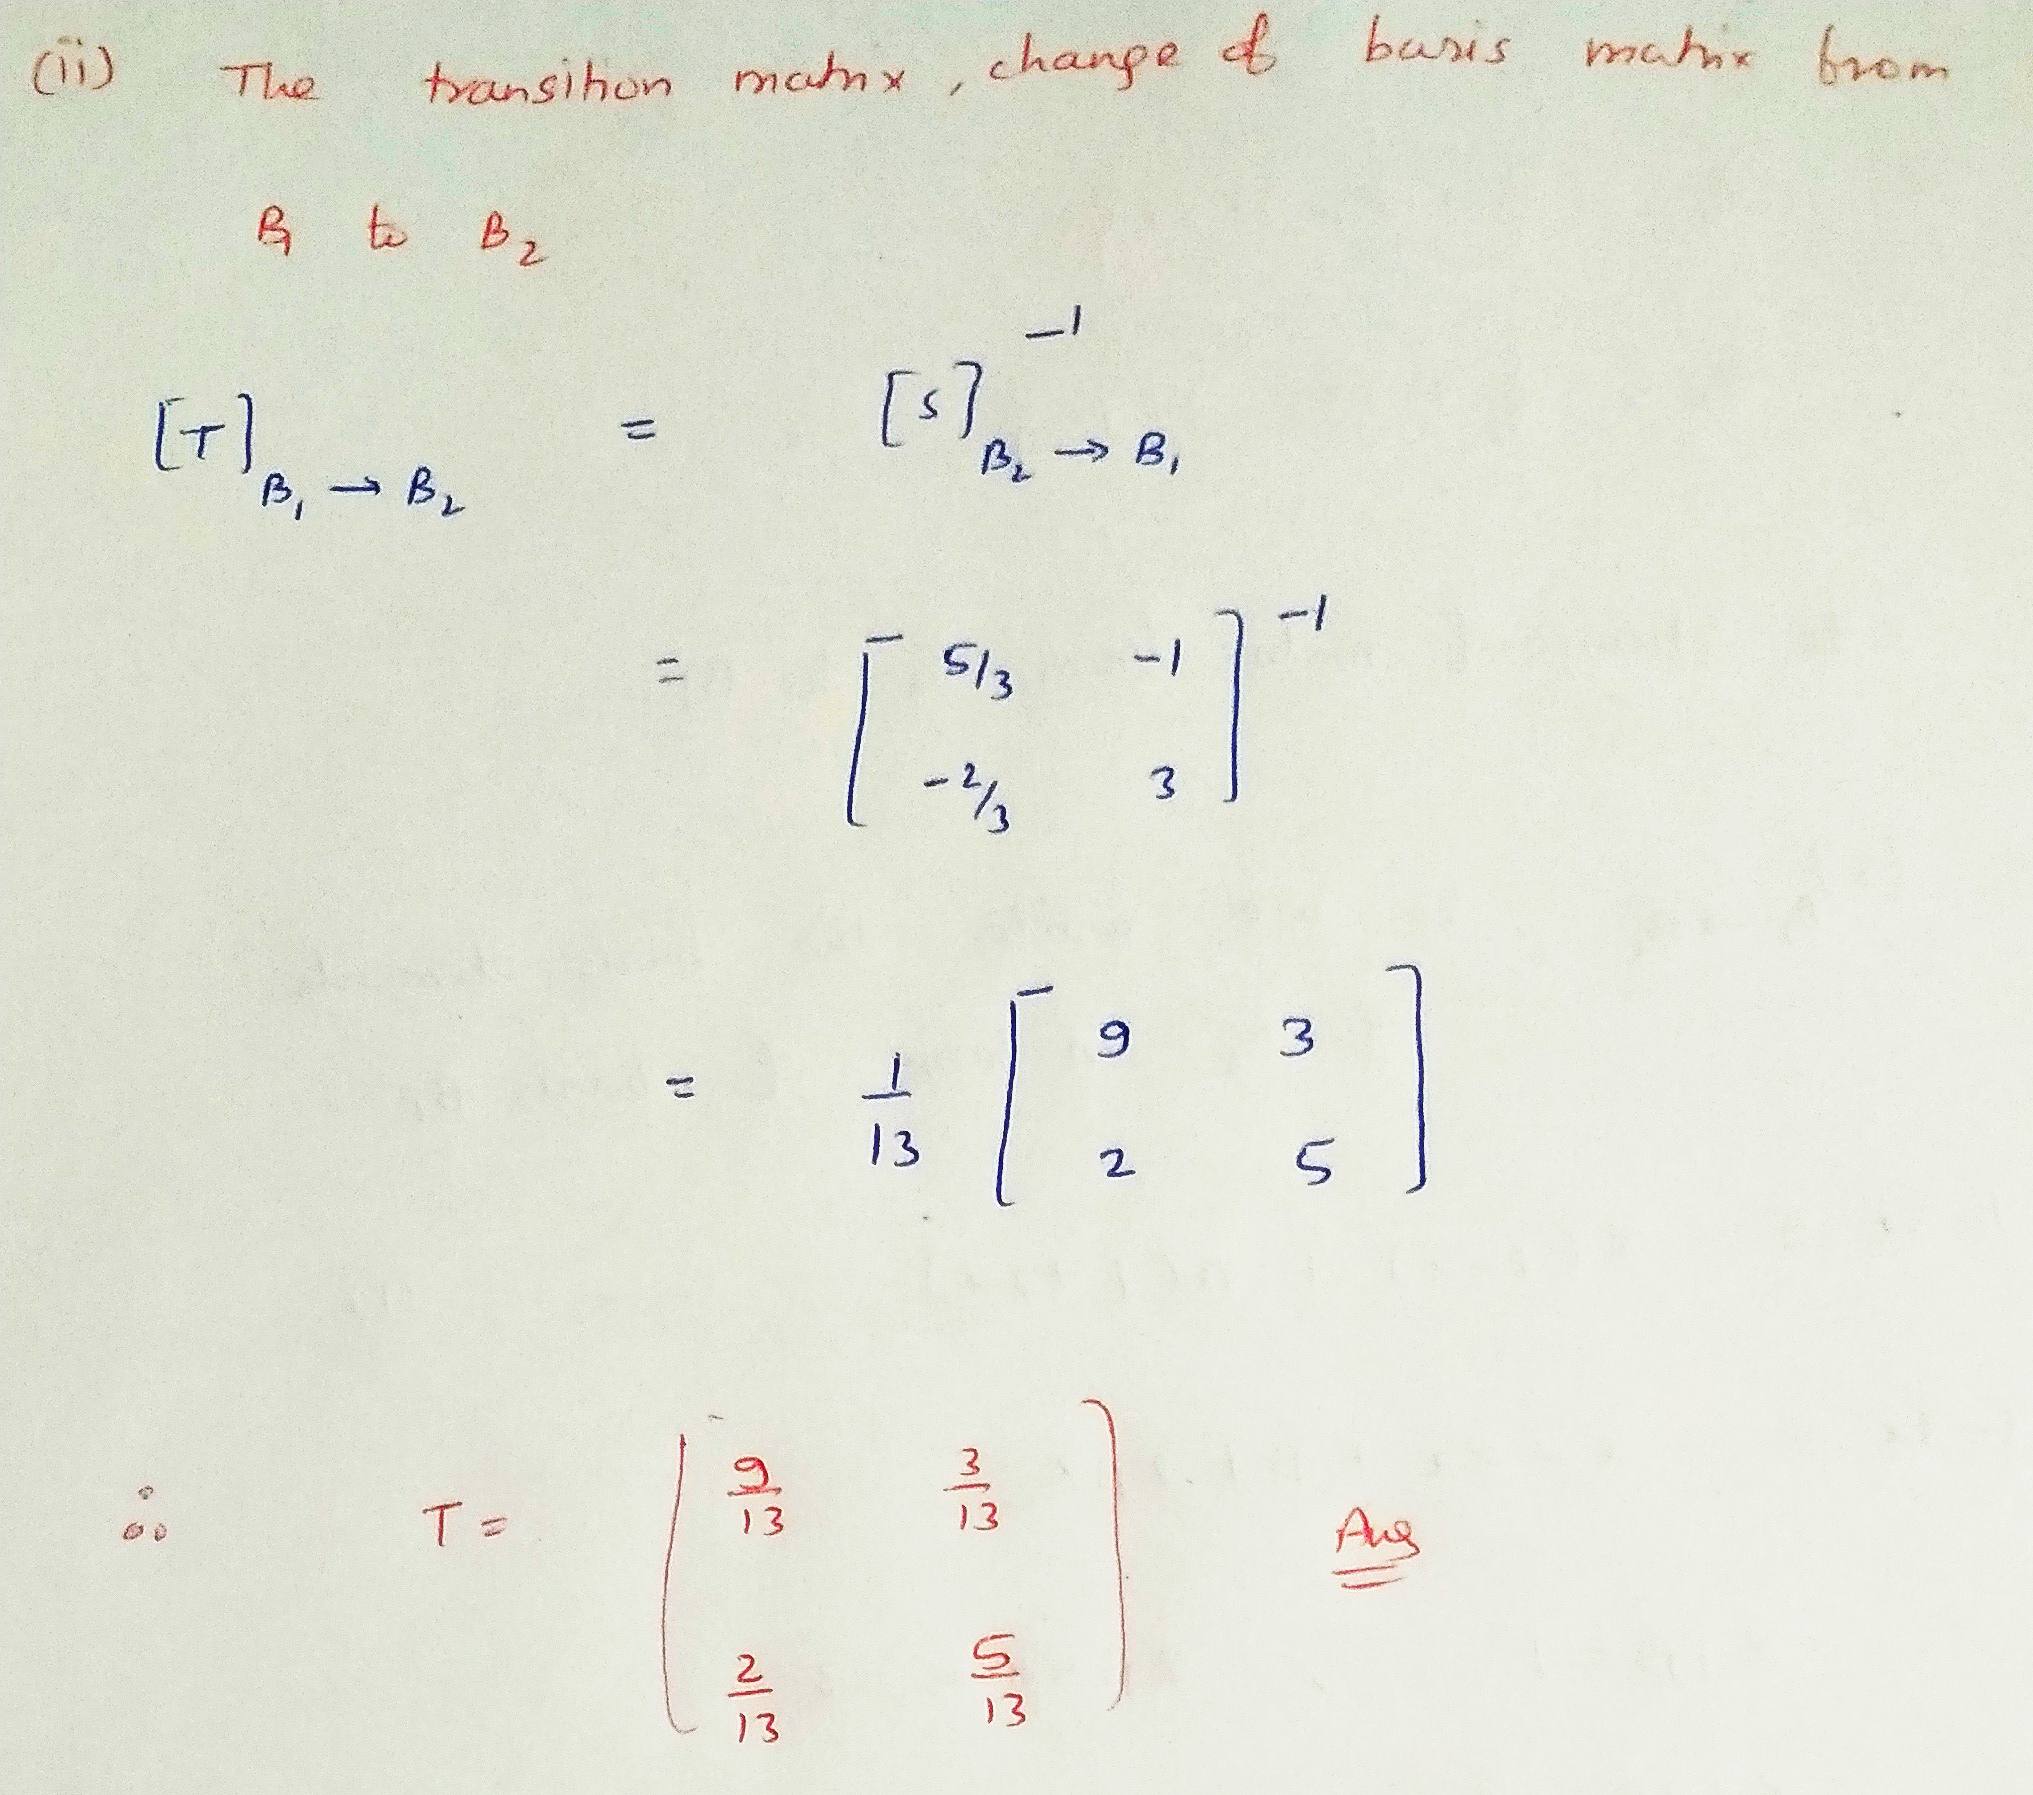 (ii) The transition matrix, change of basis matrix from
B₁ to B₂
[T]B₁ → B₂ = [S]⁻¹B₂ → B₁
= [ 5/3 -1
-2/3 3 ]⁻¹
= 1/13 [ 9 3
2 5 ]
∴ T = [ 9/13 3/13
2/13 5/13 ] Ans